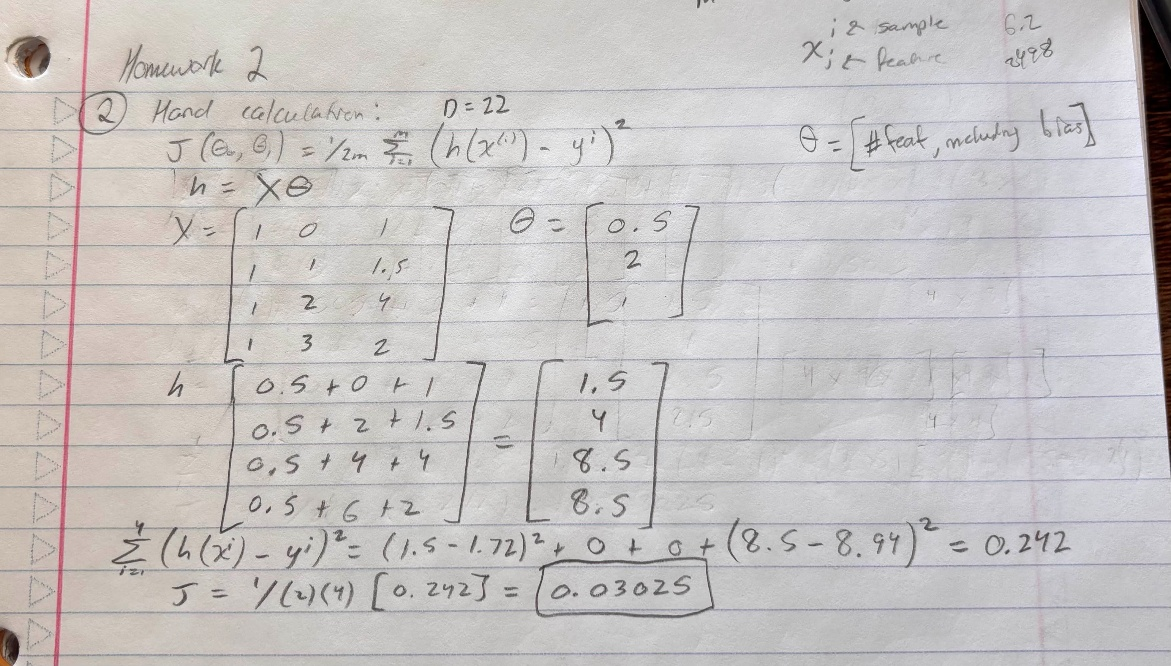 i ← sample 6.2
x j ← feature 2498
Homework 2
② Hand calculation: D = 22
J(θ₀, θ₁) = 1/2m Σ_{i=1}^{m} (h(x^{(i)}) - y^i)²
θ = [#feat, including bias]
h = Xθ
X = [ 1 0 1
1 1 1.5
1 2 4
1 3 2 ]
θ = [ 0.5
2
1 ]
h [ 0.5 + 0 + 1
0.5 + 2 + 1.5
0.5 + 4 + 4
0.5 + 6 + 2 ]
= [ 1.5
4
8.5
8.5 ]
Σ_{i=1}^{4} (h(x^i) - y^i)² = (1.5 - 1.72)² + 0 + 0 + (8.5 - 8.94)² = 0.242
J = 1/(2)(4) [0.242] = 0.03025